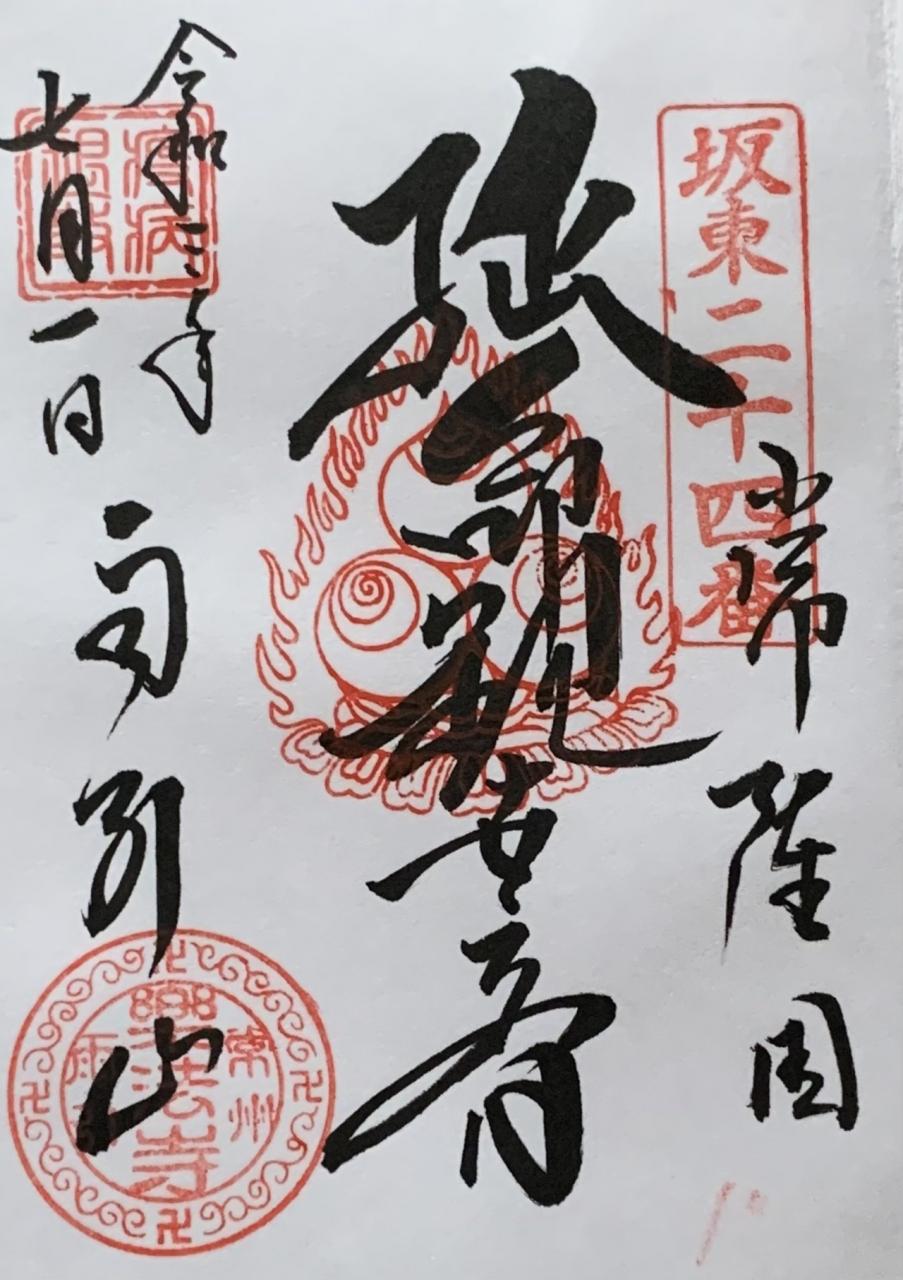 坂東二十四番
常陸国
延命観世音
令和三年
七月一日
雨引山
常州
樂法寺